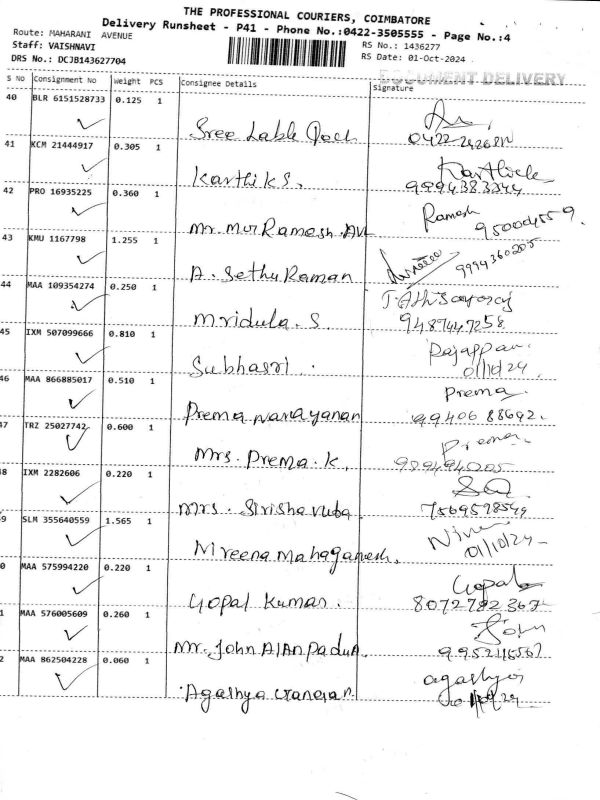 THE PROFESSIONAL COURIERS, COIMBATORE
Delivery Runsheet - P41 - Phone No.:0422-3505555 - Page No.:4
Route: MAHARANI AVENUE
RS No.: 1436277
Staff: VAISHNAVI
RS Date: 01-Oct-2024
DRS No.: DCJB143627704
DOCUMENT DELIVERY
S No Consignment No Weight PCS Consignee Details Signature
40 BLR 6151528733 0.125 1
Sree
41 KCM 21444917 0.305 1
Karthik S. Karthick
9994383244
42 PRO 16935225 0.360 1
Mr. Mur Ramesh. Ramesh
43 KMU 1167798 1.255 1
A. Sethu Raman 9994360205
44 MAA 109354274 0.250 1
Mridula. S. 9487447258
45 IXM 507099666 0.810 1
Subhasri. Rajappan
01/10/24
46 MAA 866885017 0.510 1
Prema Narayanan Prema
99406 88692.
47 TRZ 25027742 0.600 1
Mrs. Prema. K. Prema
9894940205
48 IXM 2282606 0.220 1
Mrs. Sirisha 7569598549
9 SLM 355640559 1.565 1
Mreena Mahaganesh. 01/10/24
0 MAA 575994220 0.220 1
Gopal Kumar. Gopal
8072782367
1 MAA 576005609 0.260 1
Mr. John Alan Padua. John
9952116567
2 MAA 862504228 0.060 1
Agathya agathya